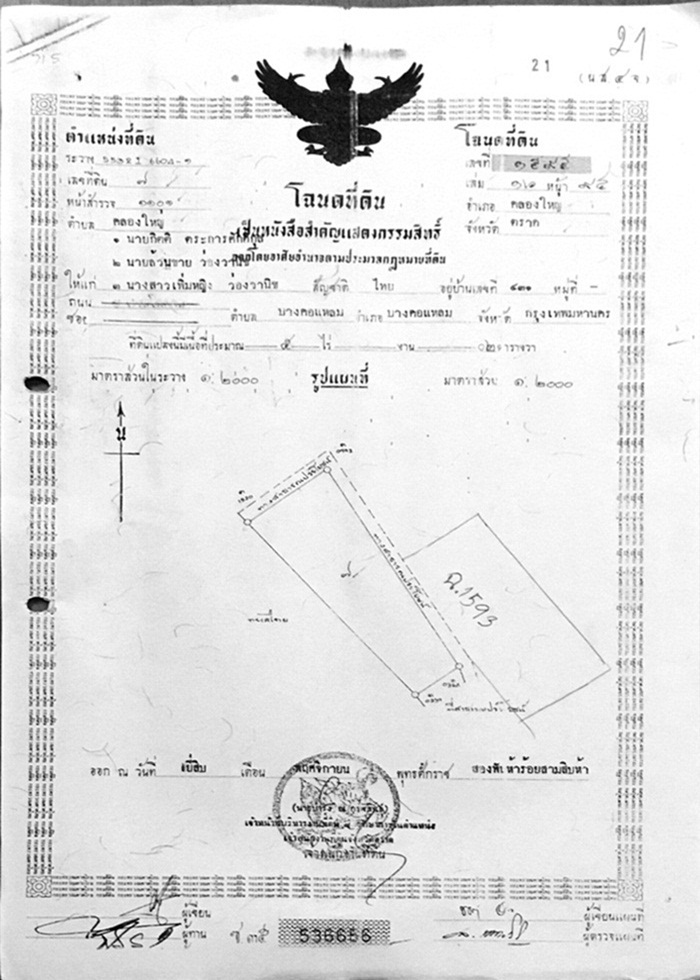 21
21
(น.ส. ๔ จ)
ตำแหน่งที่ดิน
โฉนดที่ดิน
ระวาง
เลขที่ ๑๕๙๕
เลขที่ดิน ๗
เล่ม หน้า ๙๕
หน้าสำรวจ ๑๑๐๑
อำเภอ คลองใหญ่
ตำบล คลองใหญ่
จังหวัด ตราด
โฉนดที่ดิน
เป็นหนังสือสำคัญแสดงกรรมสิทธิ์
ออกโดยอาศัยอำนาจตามประมวลกฎหมายที่ดิน
๑ นายกิตติ
๒ นายล้วนชาย ว่องวานิช
ให้แก่ ๓ นางสาวเพิ่มหญิง ว่องวานิช สัญชาติ ไทย อยู่บ้านเลขที่ ๔๓๑ หมู่ที่ -
ถนน
ซอย ตำบล บางคอแหลม อำเภอ บางคอแหลม จังหวัด กรุงเทพมหานคร
ที่ดินแปลงนี้มีเนื้อที่ประมาณ ๕ ไร่ - งาน ๐๒ ตารางวา
มาตราส่วนในระวาง ๑:๒๐๐๐ รูปแผนที่ มาตราส่วน ๑:๒๐๐๐
น
ทางสาธารณประโยชน์
ทางสาธารณประโยชน์
๗
ฉ.1593
ทะเลไทย
ออก ณ วันที่ ยี่สิบ เดือน พฤศจิกายน พุทธศักราช สองพันห้าร้อยสามสิบห้า
เจ้าพนักงานที่ดิน
ผู้เขียน
ผู้เขียนแผนที่
ผู้ทาน
ช.๓๕ 536656
ผู้ตรวจแผนที่